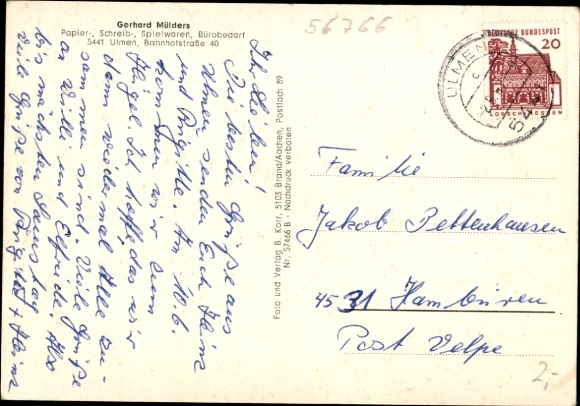 Gerhard Mülders
Papier-, Schreib-, Spielwaren, Bürobedarf
5441 Ulmen, Bahnhofstraße 40
Ihr Lieben!
Die besten Grüße aus
Ulmen senden Euch Heinz
und Brigitte. Am 10.6.
kommen wir zum
Hügel. Ich hoffe, das wir
dann wieder mal Alle zu-
sammen sind. Viele Grüße
an Willi und Elfriede. Also
bis nächsten Samstag
viele Grüße von Brigitte + Heinz
Foto und Verlag B. Korr, 5103 Brand/Aachen, Postfach 89
Nr. 57466 B - Nachdruck verboten
56766
DEUTSCHE BUNDESPOST
20
LORSCH/HESSEN
ULMEN
544
Familie
Jakob Bettenhausen
4531 Hambüren
Post Velpe
2,-